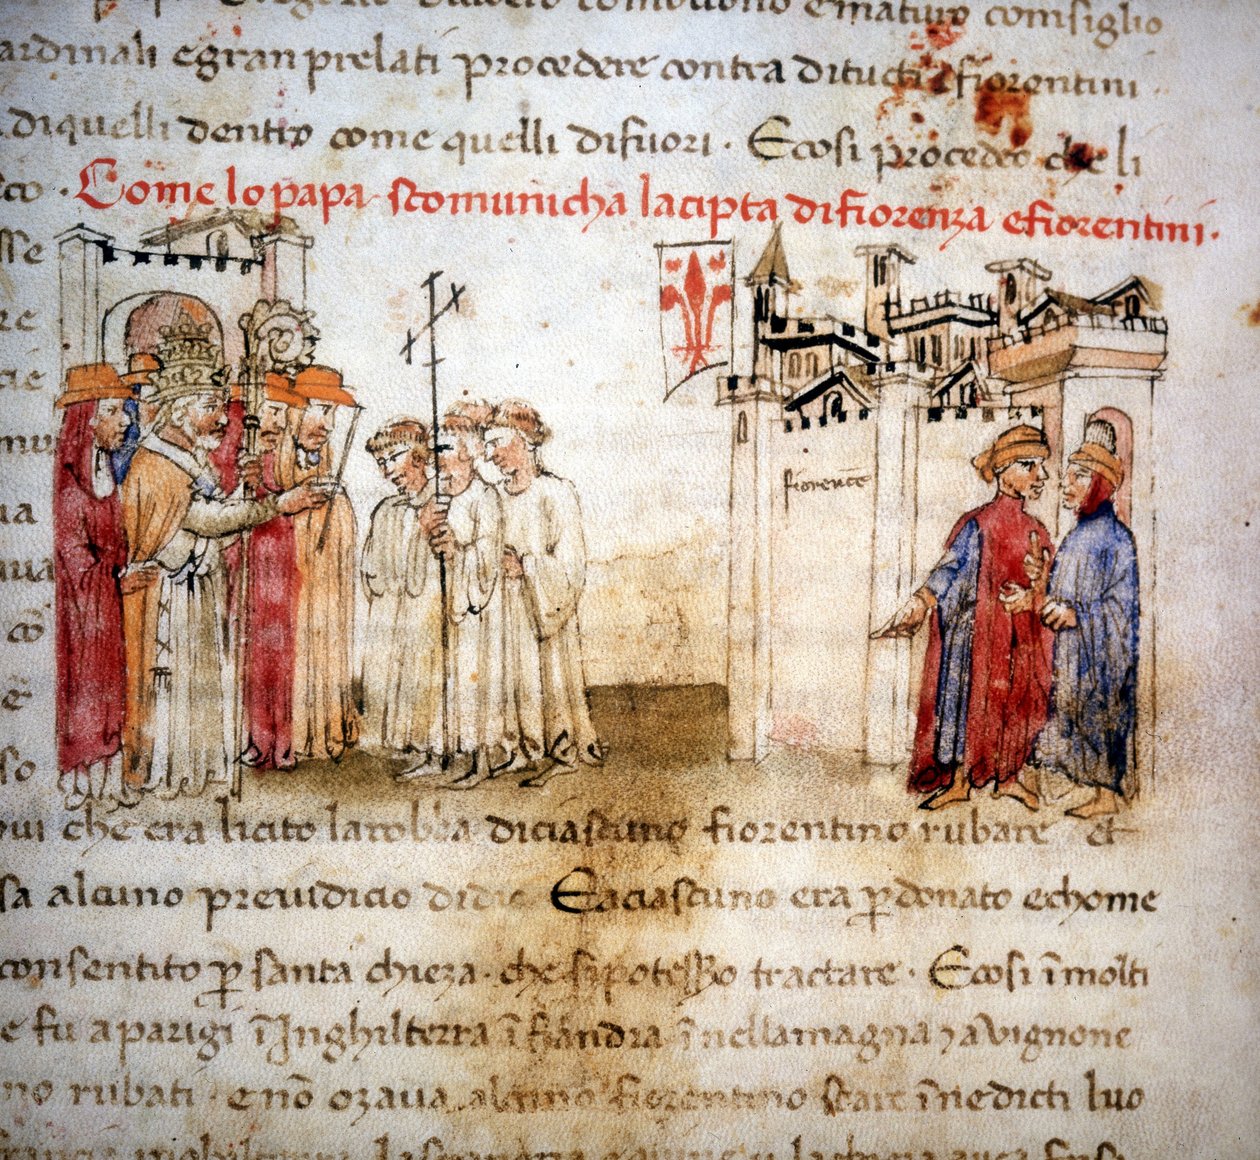 Gregorio diliberò com buono e maturo comsiglio
ardinali e gran prelati procedere contra di tucti e fiorentini
di quelli dentro come quelli di fuori · E cosi procedeo che li
co · Come lo papa scomunicha la cipta di fiorenza e fiorentini ·
sse
re
cie
mu
fiorence
ua
uua
cō
e
so
qui che era licito la robba di ciascuno fiorentino rubare et
sa alcuno preiudicio di dic E a ciascuno era p̲donato e chome
consentito p̲ santa chieza · che si potesso tractare · E cosi ī molti
e fu a parigi ī Jnghilterra ī fiandra ī nella magna ⁊ a Vignone
no rubati · e nō ozaua alcuno fiorentino stare ī ne dicti luo